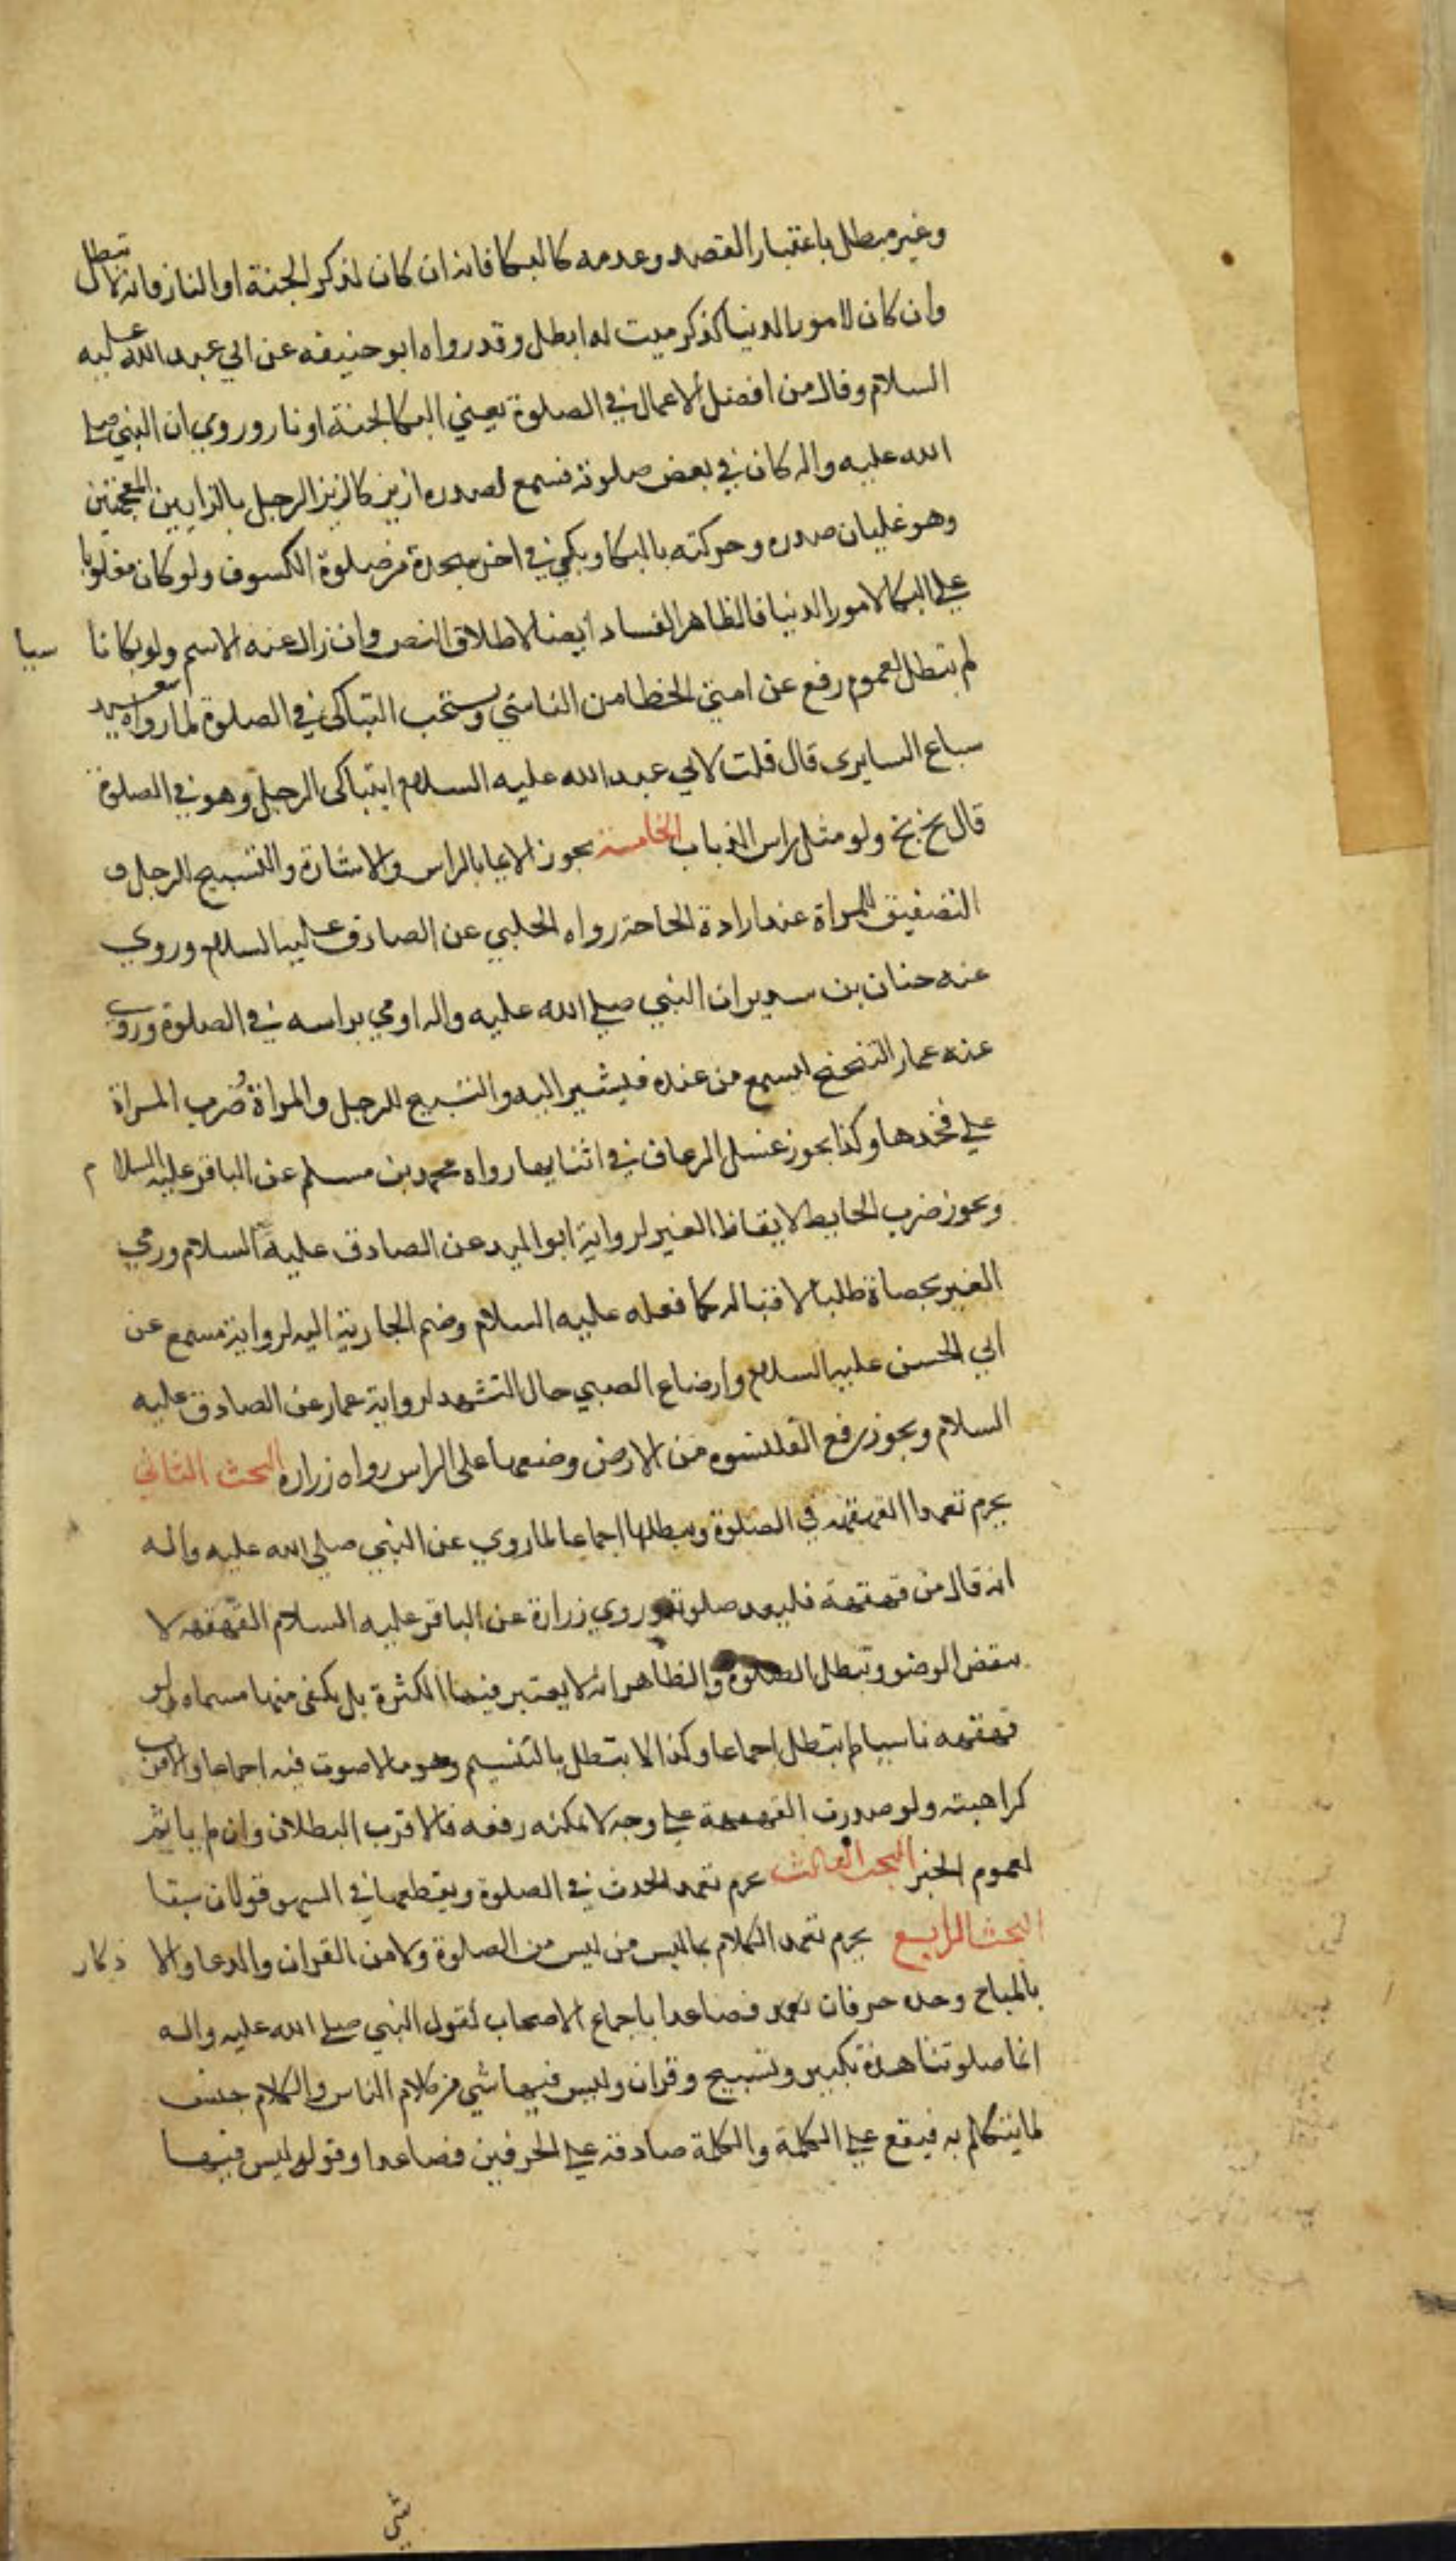 وغير مبطل باعتبار القصد وعدمه كالبكا فانه ان كان لذكر الجنة او النار فانه لا تبطل
وان كان لامور الدنيا كذكر ميت له ابطل وقد رواه ابو حنيفه عن ابي عبد الله عليه
السلام وقال من افضل الاعمال في الصلوة يعني البكا لجنة او نار وروي ان النبي صلى
الله عليه واله كان في بعض صلوته فسمع لصدره ازيز كازيز الرجل بالزايين المعجمتين
وهو غليان صدره وحركته بالبكا وبكي في اخر سجدة من صلوة الكسوف ولو كان مغلوبا
على البكا لامور الدنيا فالظاهر الفساد ايضا لاطلاق النص وان زال عنه الاسم ولو بكا نا سيا
لم تبطل لعموم رفع عن امتي الخطا من الناسي ويستحب التباكي في الصلوة لما رواه سعيد
سباع السايري قال قلت لابي عبد الله عليه السلام ايتباكى الرجل وهو في الصلوة
قال بخ بخ ولو مثل راس الذباب الخامسة يجوز الايما بالراس والاشارة والتسبيح للرجل و
التصفيق للمراة عند ارادة الحاجة رواه الحلبي عن الصادق عليه السلام وروي
عنه حنان بن سدير ان النبي صلى الله عليه واله اومي براسه في الصلوة وروي
عنه عمار التنحنح ليسمع من عنده فيشير اليه والتسبيح للرجل والمراة وضرب المراة
على فخدها وكذا يجوز غسل الرعاف في اثنايها رواه محمد بن مسلم عن الباقر عليه السلام
ويجوز ضرب الحايط لايقاظ الغير لرواية ابو الوليد عن الصادق عليه السلام ورمي
الغير بحصاة طلبا لاقباله كما فعله عليه السلام وضم الجارية اليه لرواية مسمع عن
ابي الحسن عليه السلام وارضاع الصبي حال التشهد لرواية عمار عن الصادق عليه
السلام ويجوز رفع القلنسوه من الارض وضعها على الراس رواه زراره البحث الثاني
يحرم تعمد القهقهه في الصلوة ويبطلها اجماعا لما روي عن النبي صلى الله عليه واله
انه قال من قهقهة فليعد صلوته وروي زرارة عن الباقر عليه السلام القهقهه لا
ينقض الوضو وتبطل الصلوة والظاهر انه لا يعتبر فيها الكثرة بل يكفي منها مسماه ولو
قهقهه ناسيا لم تبطل اجماعا وكذا لا بتطل بالتبسم وهو ما لا صوت فيه اجماعا والاقرب
كراهيته ولو صدرت القهقهة على وجه لا يمكنه رفعه فالاقرب البطلان وان لم ياثم
لعموم الخبر البحث الثالث يحرم تعمد الحدث في الصلوة ويقطعها في السهو قولان سبقا
البحث الرابع يحرم تعمد الكلام بما ليس من ليس من الصلوة ولا من القران والدعا والا ذكار
بالمباح وحده حرفان فصاعدا باجماع الاصحاب لقول النبي صلى الله عليه واله
انما صلوتنا هذه تكبير وتسبيح وقران وليس فيها شي من كلام الناس والكلام جنس
لما يتكلم به فيقع على الكلمة والكلمة صادقة على الحرفين فصاعدا وقوله ليس فيها
شي